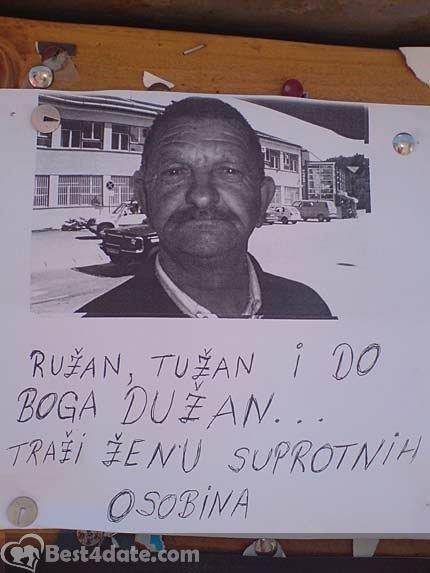 RUŽAN, TUŽAN I DO
BOGA DUŽAN...
TRAŽI ŽENU SUPROTNIH
OSOBINA
Best4date.com